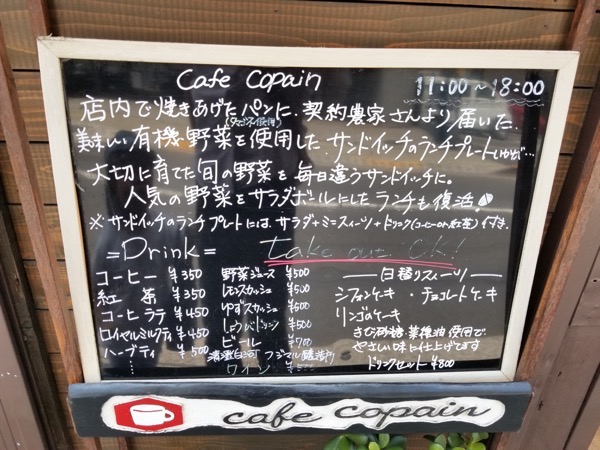 Cafe Copain
11:00～18:00
店内で焼きあげたパンに、契約農家さんより届いた、
美味しい有機野菜を使用した、サンドイッチのランチプレートいかが…
大切に育てた旬の野菜を毎日違うサンドイッチに。
人気の野菜をサラダボールにしたランチも復活
※サンドイッチのランチプレートには、サラダ+ミニスィーツ+ドリンク(コーヒーor紅茶)付き.
=Drink=
take out OK!
コーヒー ¥350
紅茶 ¥350
コーヒーラテ ¥450
ロイヤルミルクティ ¥450
ハーブティ ¥500
…
野菜ジュース ¥500
レモンスカッシュ ¥500
ゆずスカッシュ ¥500
しょうがドリンク ¥500
ビール ¥700
ワイン
日替りスィーツ
シフォンケーキ ・チョコレートケーキ
リンゴのケーキ
きび砂糖、菜種油使用で
やさしい味に仕上げてます
ドリンクセット ¥800
cafe copain